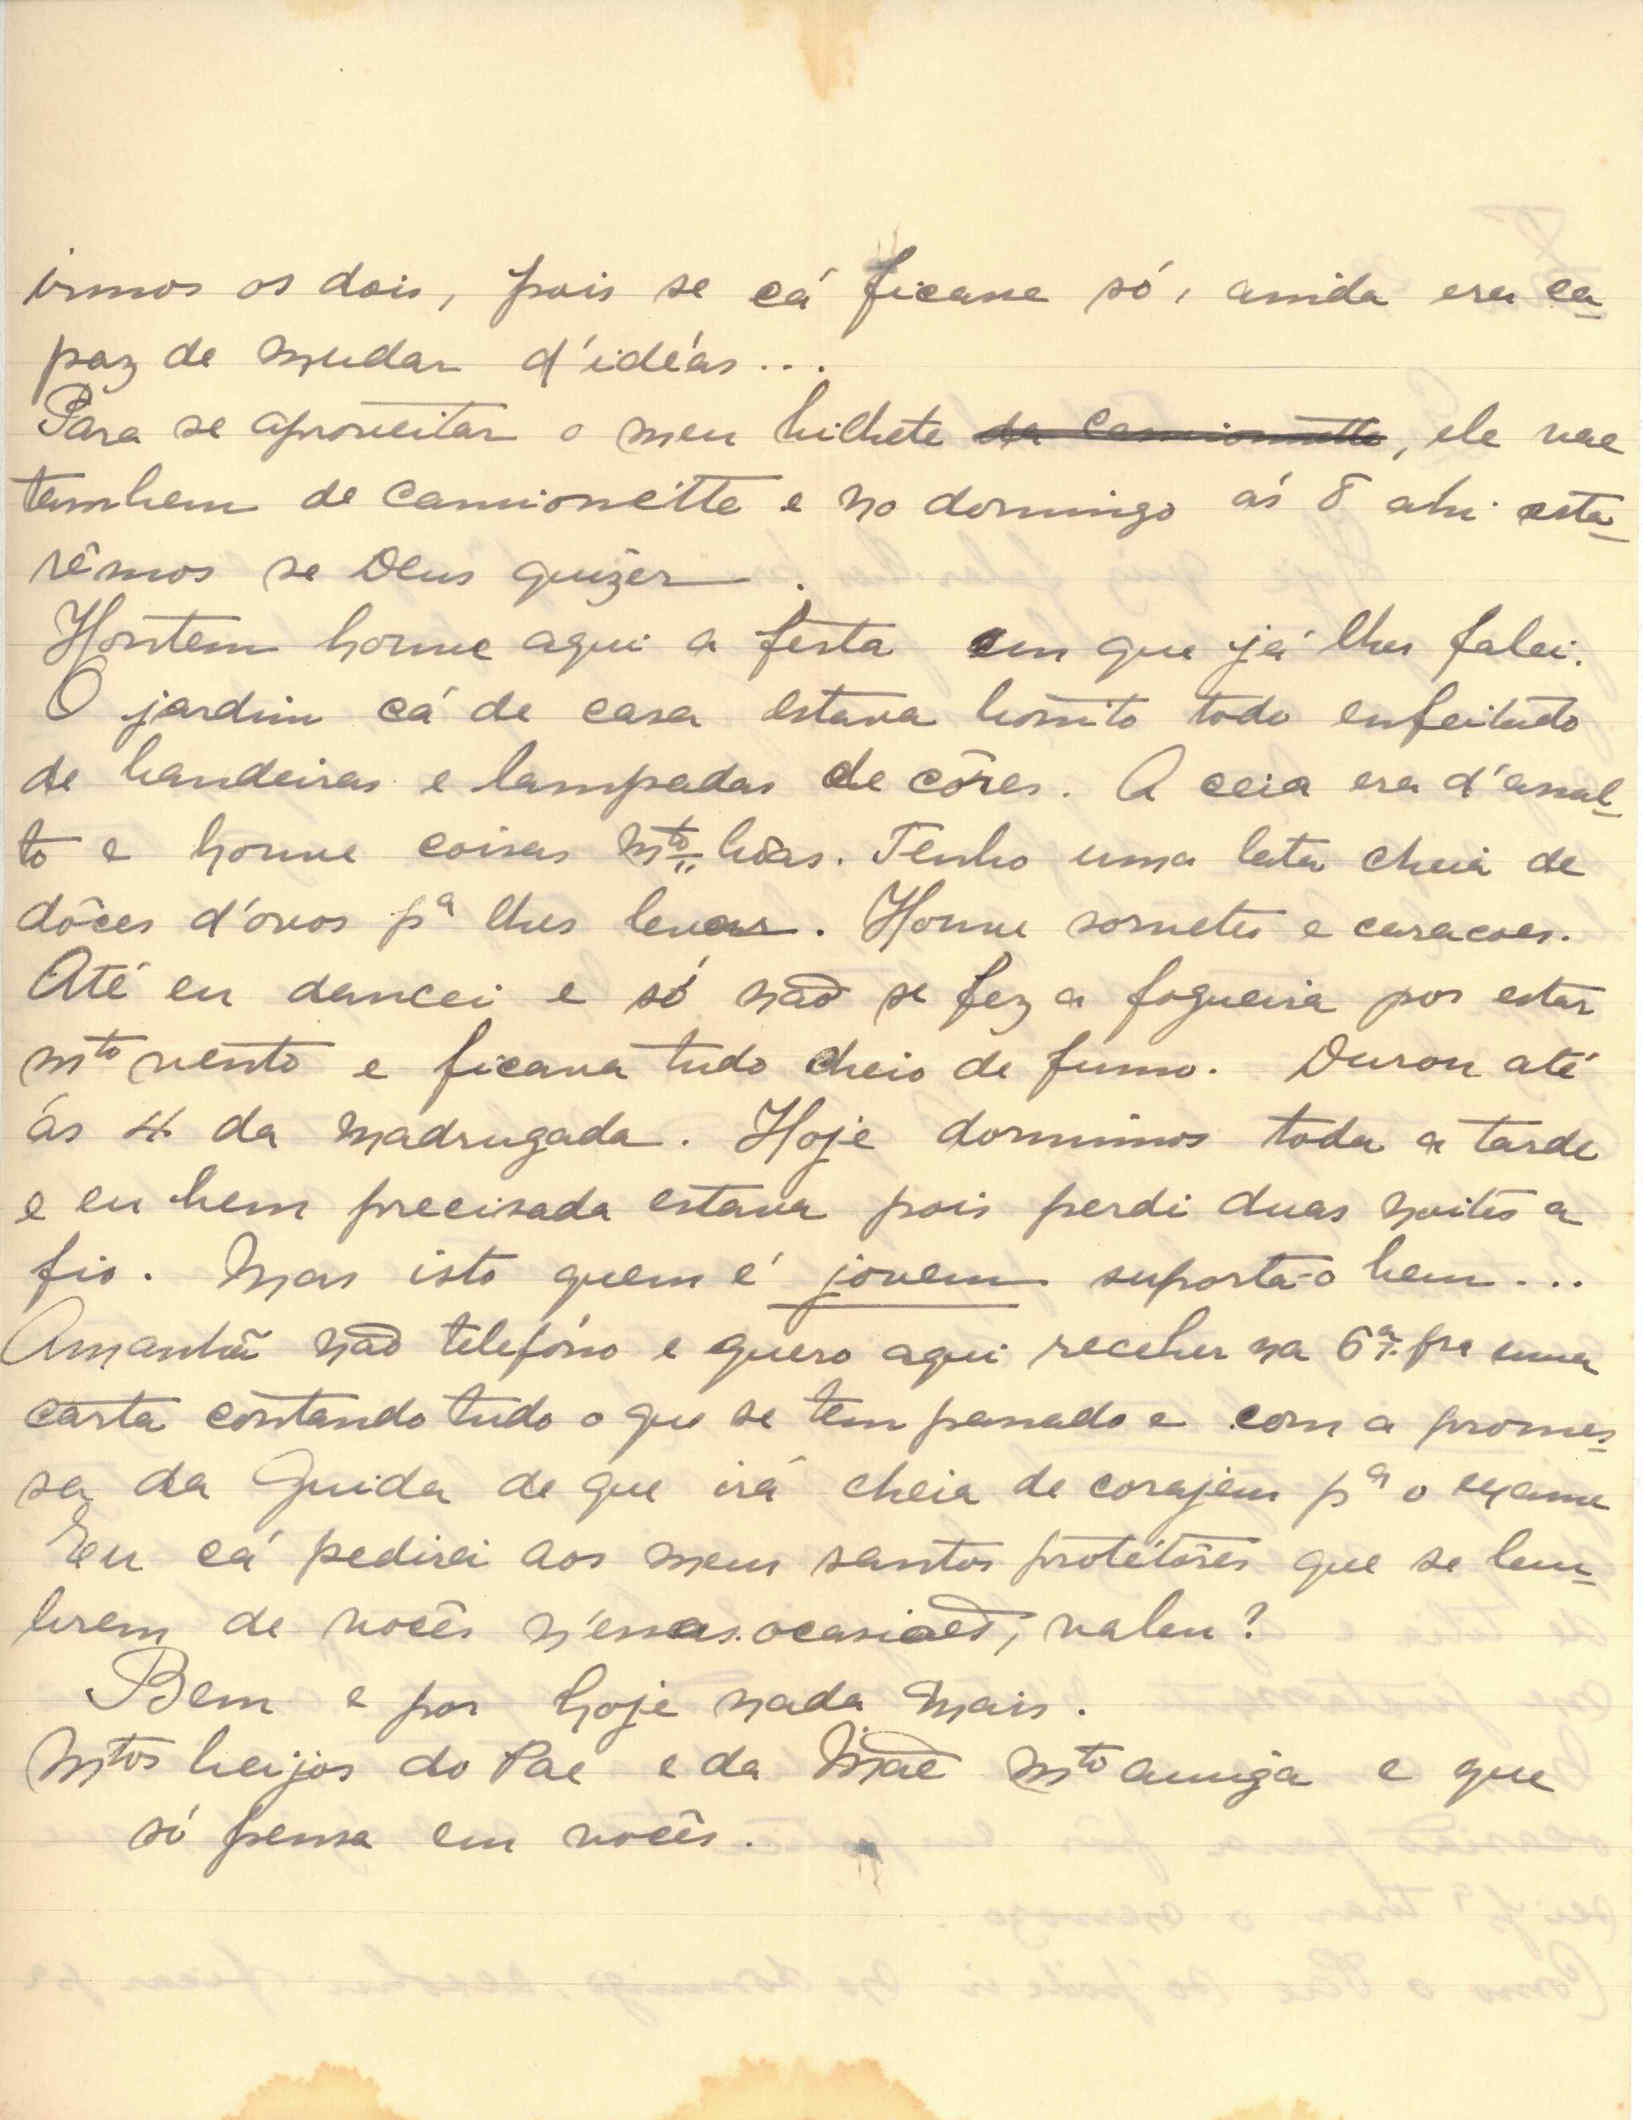 irmos os dois, pois se cá ficasse só, ainda era ca-
paz de mudar d'idéas...
Para se aproveitar o meu bilhete da camionette, ele vae
tambem de camionette e no domingo ás 8 ahi esta-
rêmos se Deus quizér.
Hontem houve aqui a festa em que já lhes falei.
O jardim cá de casa estava bonito todo enfeitado
de bandeiras e lampadas de côres. A ceia era d'assal-
to e houve coisas mto bôas. Tenho uma lata cheia de
dôces d'óvos pa lhes levar. Houve sorvetes e caracoes.
Até eu dancei e só não se fez a fogueira por estar
mto vento e ficava tudo cheio de fumo. Durou até
ás 4 da madrugada. Hoje dormimos toda a tarde
e eu bem precisada estava pois perdi duas noites a
fio. Mas isto quem é jovem suporta-o bem...
Amanhã não telefóno e quero aqui receber na 6ª fra uma
carta contando tudo o que se tem passado e com a promes-
sa da Guida de que irá cheia de corajem pa o exame
Eu cá pedirei aos meus santos protétôres que se lem-
brem de vocês n'essas ocasiões, valeu?
Bem e por hoje nada mais.
Mtos beijos do Pae e da Mãe mto amiga e que
só pensa em vocês.